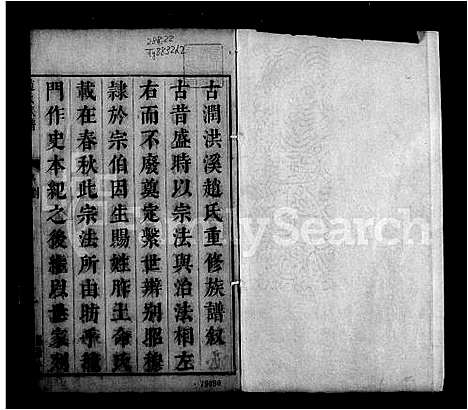 288.22
古潤洪溪趙氏重修族譜敘
古昔盛時以宗法與治法相左
右而不廢奠定繫世辨別昭穆
隸於宗伯因生賜姓胙土命氏
載在春秋此宗法所由昉乎龍
門作史本紀之後繼以世家列
Search